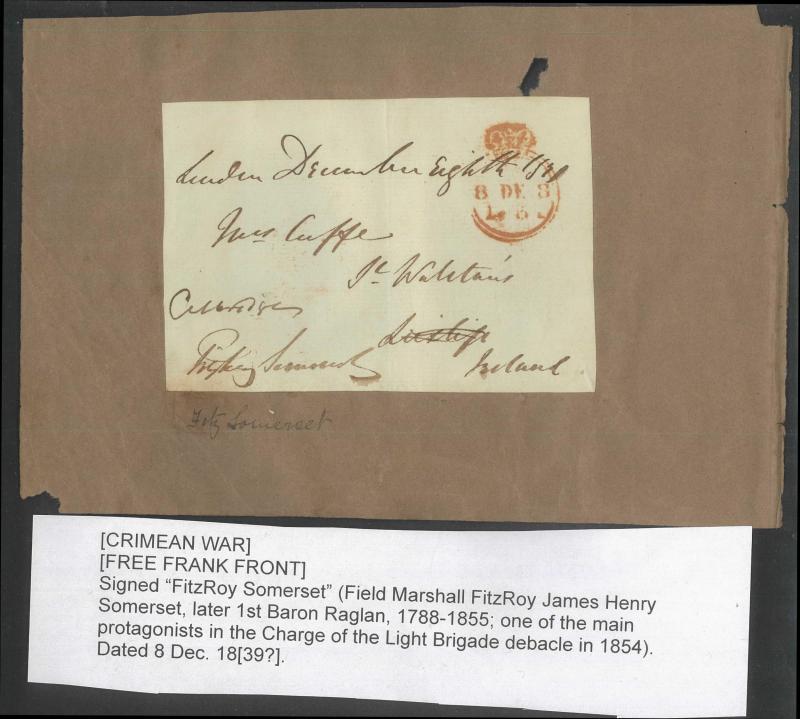 London December Eighth
8 DE 8
Mrs Cuffe
St. Wolstan's
Celbridge
Leixlip
FitzRoy Somerset
Ireland
Fitz Somerset
[CRIMEAN WAR]
[FREE FRANK FRONT]
Signed “FitzRoy Somerset” (Field Marshall FitzRoy James Henry
Somerset, later 1st Baron Raglan, 1788-1855; one of the main
protagonists in the Charge of the Light Brigade debacle in 1854).
Dated 8 Dec. 18[39?].